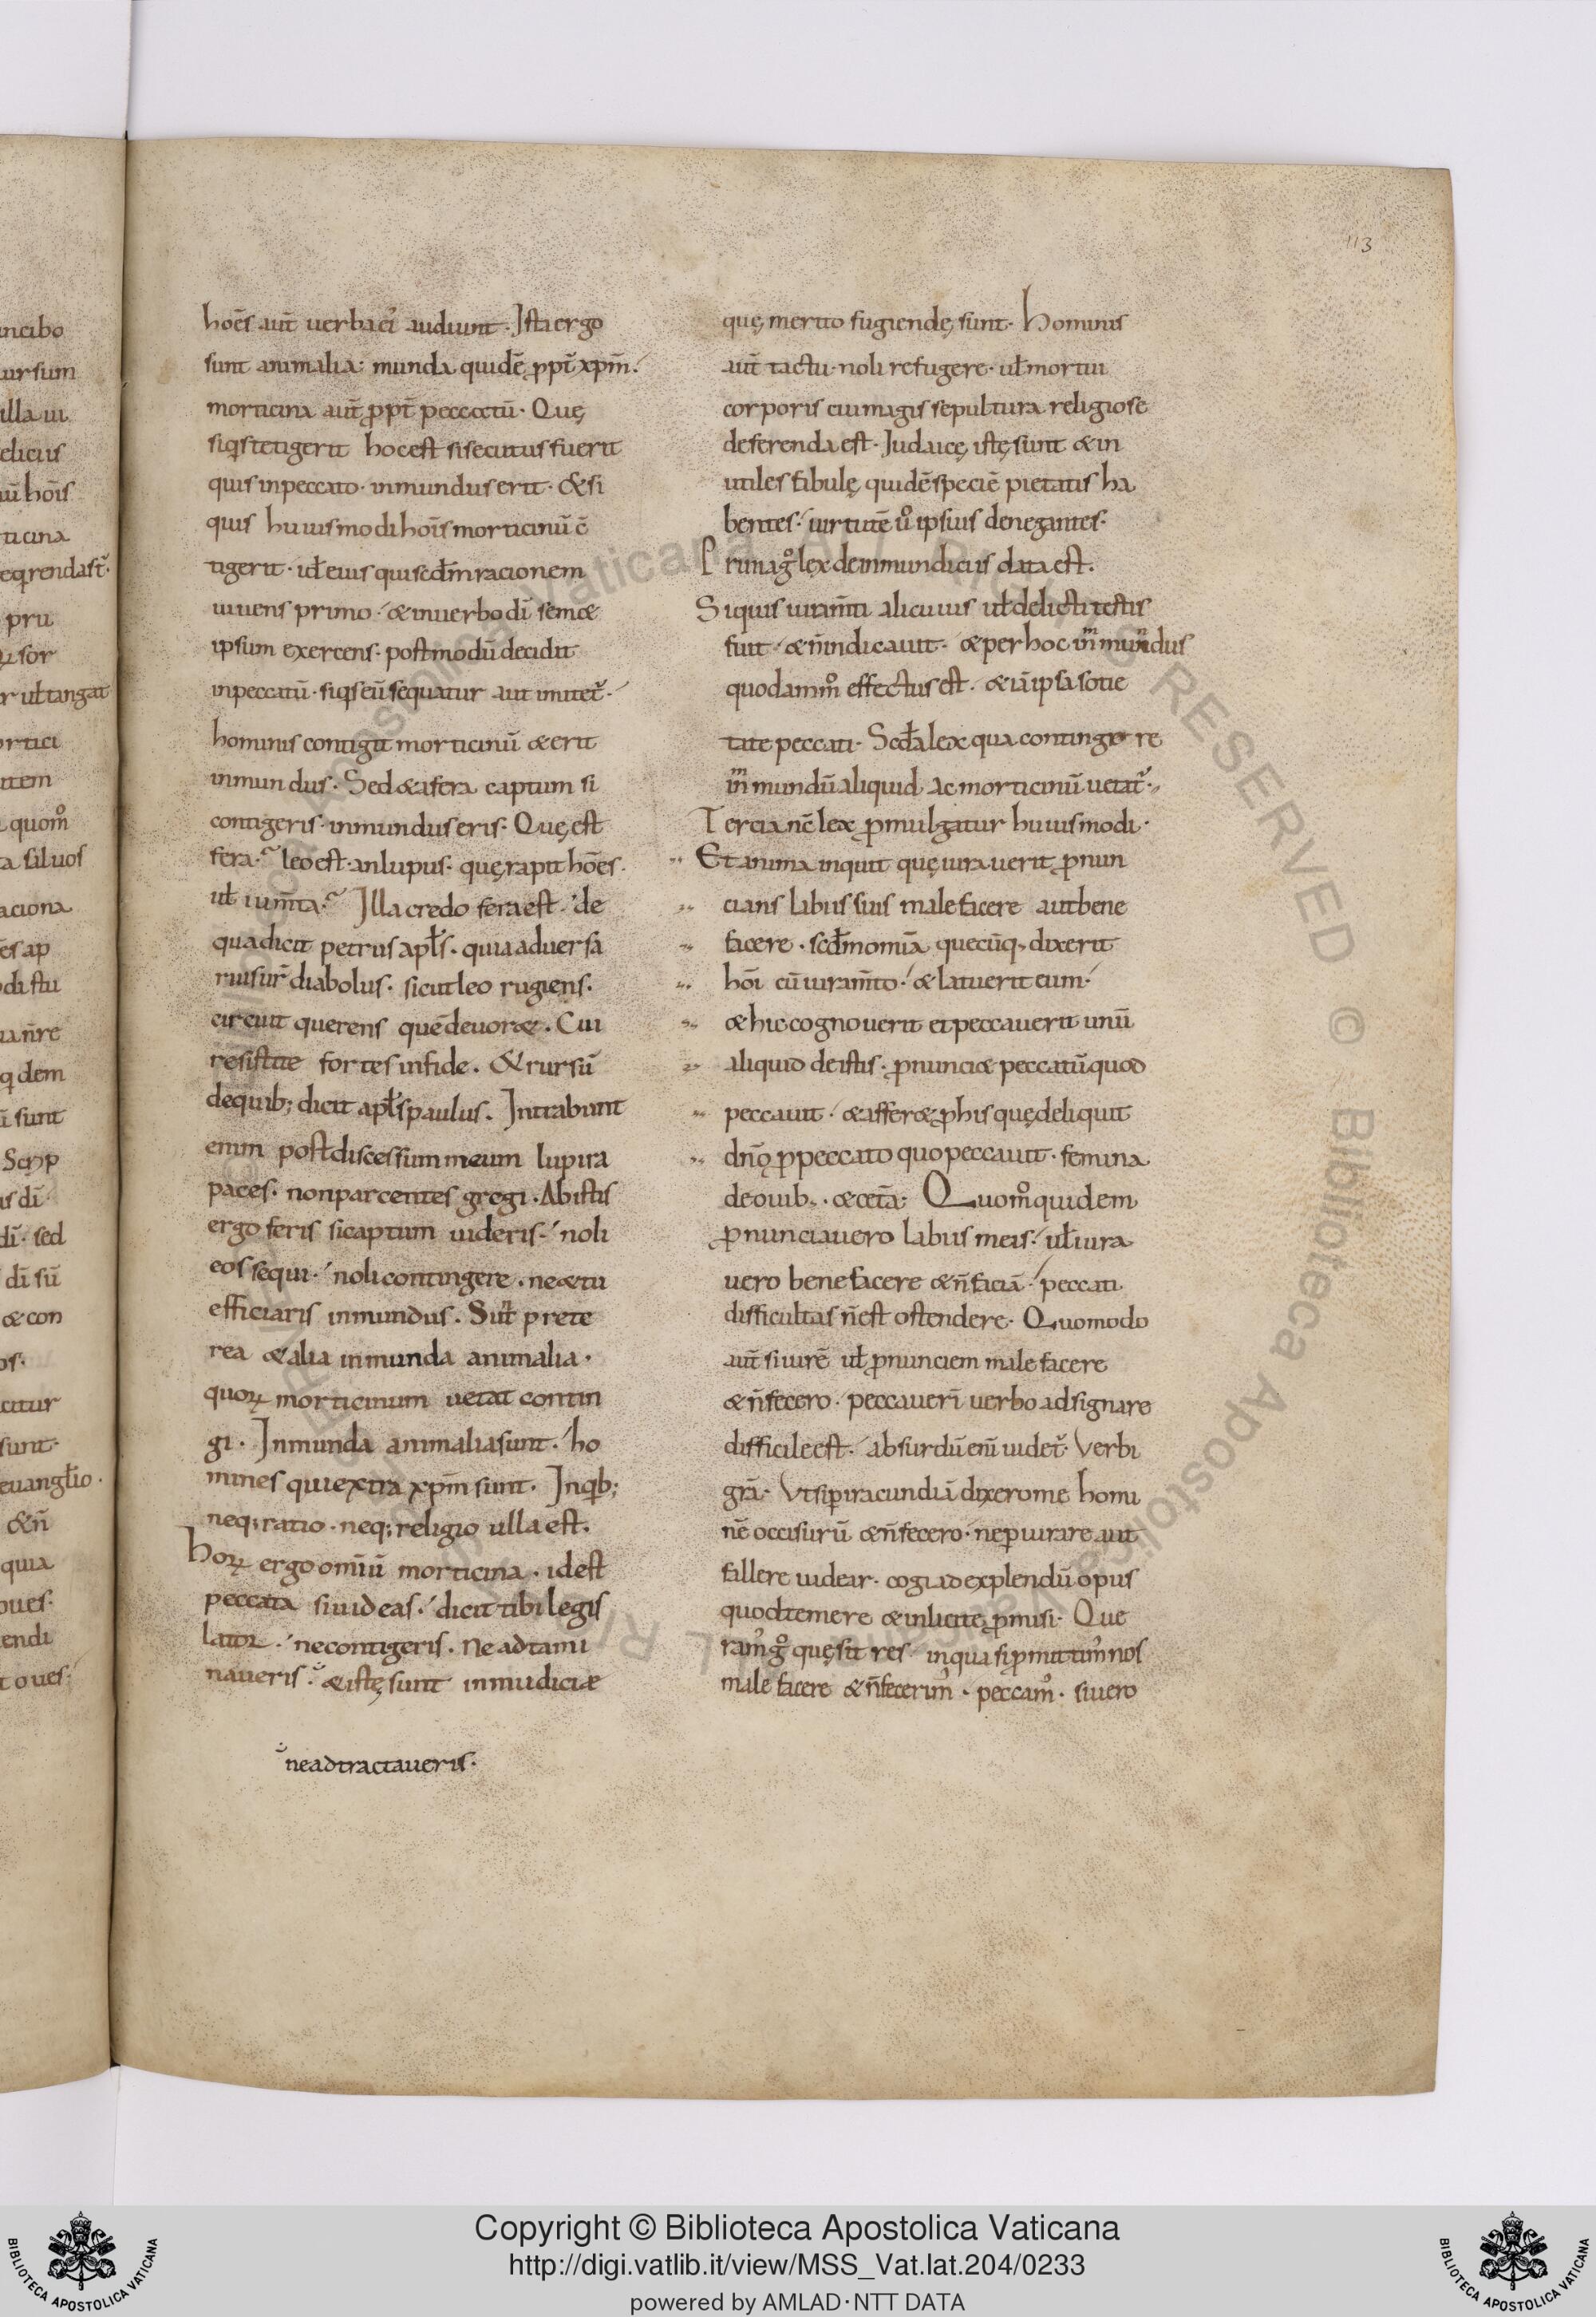 113
hoēs aut̄ uerba ei᾽ audiunt. Ista ergo
sunt animalia: munda quidē ppt̄ xpm̄.
morticina aut̄ ppt̄ peccatū. Quę
siqs tetigerit hoc est si secutus fuerit
quis in peccato. inmundus erit. & si
quis huiusmodi hois̄ morticinū c̄
tigerit. ul̄ eius qui scd̄m racionem
uiuens primo. & in uerbo dī sem&
ipsum exercens. postmodū decidit
in peccatū. siqs eū sequatur aut imitet᷑.
hominis contigit morticinū & erit
inmundus. Sed & a fera captum si
contigeris. inmundus eris. Quę est
fera. leo est. an lupus. quę rapit hoēs.
ul̄ ium̄ta. Illa credo fera est. de
qua dicit petrus apl̄s. quia aduersa
rius ur̄ diabolus. sicut leo rugiens.
circuit querens quē deuor&. Cui
resistite fortes in fide. & rursū
de quib; dicit apl̄s paulus. Intrabunt
enim post discessum meum lupi ra
paces. non parcentes gregi. Ab istis
ergo feris si captum uideris. noli
eos sequi. noli contingere. ne & tu
efficiaris inmundus. Sunt prete
rea & alia inmunda animalia.
quoꝝ morticinum uetat contin
gi. Inmunda animalia sunt. ho
mines qui extra xpm̄ sunt. In qb;
neq; ratio. neq; religio ulla est.
hoꝝ ergo omīū morticina. id est
peccata si uideas. dicit tibi legis
lator. ne contigeris. Ne adtami
naueris. & istę sunt inmudiciæ
ne adtractaueris.
quę merito fugiendę sunt. Hominis
aut̄ tactu noli refugere. ul̄ mortui
corporis cui magis sepultura religiose
deferenda est. Judaicę istę sunt & in
utiles fabulę quidē speciē pietatis ha
bentes. uirtutē u᷑o ipsius denegantes.
Prima g᷑o lex de inmundiciis data est.
Si quis iuram̄ti alicuius ul̄ delicti testis
fuit. & n̄ indicauit. & per hoc inmundus
quodamm᷑o effectus est. & iā ipsa sotie
tate peccati. Scd̄a lex qua contingere
inmundū aliquid ac morticinū uetat᷑.
Tercia nc̄ lex pmulgatur huiusmodi.
Et anima inquit quę iurauerit pnun
cians labiis suis male facere aut bene
facere. scd̄m om̄ia quecūq; dixerit
hoī cū iuram̄to. & latuerit eum.
& hic cognouerit et peccauerit unū
aliquid de istis. pnunci& peccatū quod
peccauit. & affer& p his quę deliquit
dn̄o p peccato quo peccauit. femina
de ouib;. & cet̄a. Quom᷑o quidem
pnunciauero labiis meis. ul̄ iura
uero bene facere & n̄ faciā. peccati
difficultas n̄ est ostendere. Quomodo
aut̄ si iurē ul̄ pnunciem male facere
& n̄ fecero. peccauerī uerbo adsignare
difficile est. absurdū enī uidet᷑. Verbi
grā. Vt si p iracundiā dixero me homi
nē occisurū & n̄ fecero. ne piurare aut
fallere uidear. cogi ad explendū opus
quod temere & inlicite pmisi. Que
ram᷒ g᷑o quę sit res in qua si pmittim᷒ nos
male facere & n̄ fecerim᷒. peccam᷒. si uero
Copyright © Biblioteca Apostolica Vaticana
http://digi.vatlib.it/view/MSS_Vat.lat.204/0233
powered by AMLAD·NTT DATA
BIBLIOTECA APOSTOLICA VATICANA
BIBLIOTECA APOSTOLICA VATICANA